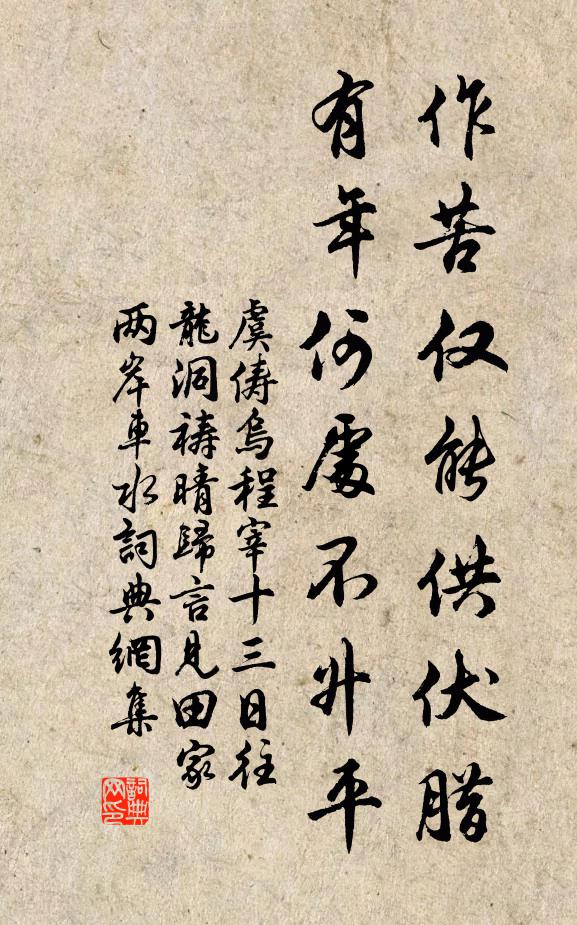 作苦仅能供伏腊
有年何處不升平
虞俦烏程宰十三日往
龍洞禱晴歸言見田家
两岸車水詞典網集
詞典
网印